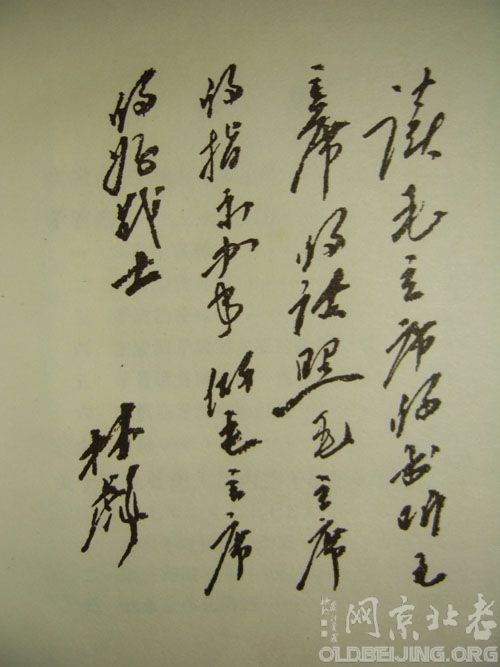 读毛主席的书听毛
主席的话照毛主席
的指示办事做毛主席
的好战士
林彪
老北京网
OLDBEIJING.ORG